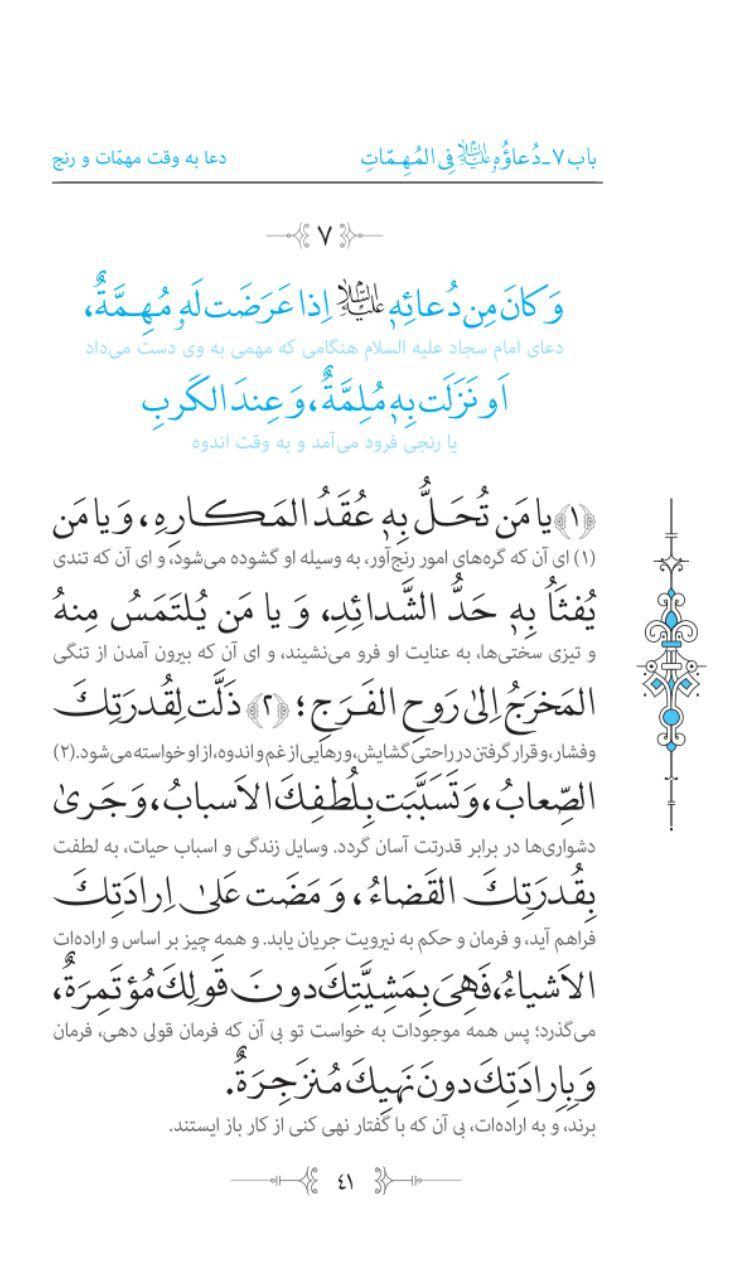 باب ۷ـ دُعاؤُهُ علیه‌السلام فِی المُهِمّاتِ دعا به وقت مهمّات و رنج
۷
وَ کانَ مِن دُعائِهِ علیه‌السلام اِذا عَرَضَت لَهُ مُهِمَّةٌ،
دعای امام سجاد علیه السلام هنگامی که مهمی به وی دست می‌داد
اَو نَزَلَت بِهِ مُلِمَّةٌ، وَ عِندَ الکَربِ
یا رنجی فرود می‌آمد و به وقت اندوه
﴿۱﴾ یا مَن تُحَلُّ بِهِ عُقَدُ المَکارِهِ، وَ یا مَن
(۱) ای آن که گره‌های امور رنج‌آور، به وسیله او گشوده می‌شود، و ای آن که تندی
یُفثَأُ بِهِ حَدُّ الشَّدائِدِ، وَ یا مَن یُلتَمَسُ مِنهُ
و تیزی سختی‌ها، به عنایت او فرو می‌نشیند، و ای آن که بیرون آمدن از تنگی
المَخرَجُ اِلیٰ رَوحِ الفَرَجِ؛ ﴿۲﴾ ذَلَّت لِقُدرَتِكَ
وفشار، و قرار گرفتن در راحتی گشایش، و رهایی از غم و اندوه، از او خواسته می‌شود. (۲)
الصِّعابُ، وَ تَسَبَّبَت بِلُطفِكَ الاَسبابُ، وَ جَریٰ
دشواری‌ها در برابر قدرتت آسان گردد. وسایل زندگی و اسباب حیات، به لطفت
بِقُدرَتِكَ القَضاءُ، وَ مَضَت عَلیٰ اِرادَتِكَ
فراهم آید، و فرمان و حکم به نیرویت جریان یابد. و همه چیز بر اساس و اراده‌ات
الاَشیاءُ، فَهِیَ بِمَشِیَّتِكَ دونَ قَولِكَ مُؤتَمِرَةٌ،
می‌گذرد؛ پس همه موجودات به خواست تو بی آن که فرمان قولی دهی، فرمان
وَ بِاِرادَتِكَ دونَ نَهیِكَ مُنزَجِرَةٌ.
برند، و به اراده‌ات، بی آن که با گفتار نهی کنی از کار باز ایستند.
٤١